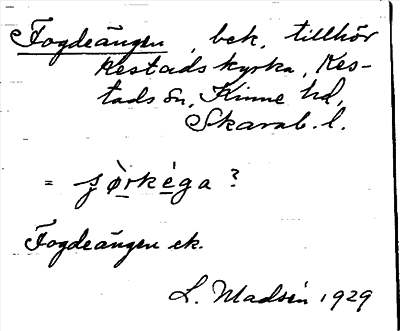 Fogdeängen, bek. tillhör
Kestads kyrka, Kes-
tads sn, Kinne hd,
Skarab. l.
= ʂø̀rkéga ?
Fogdeängen ek.
L. Madsén 1929